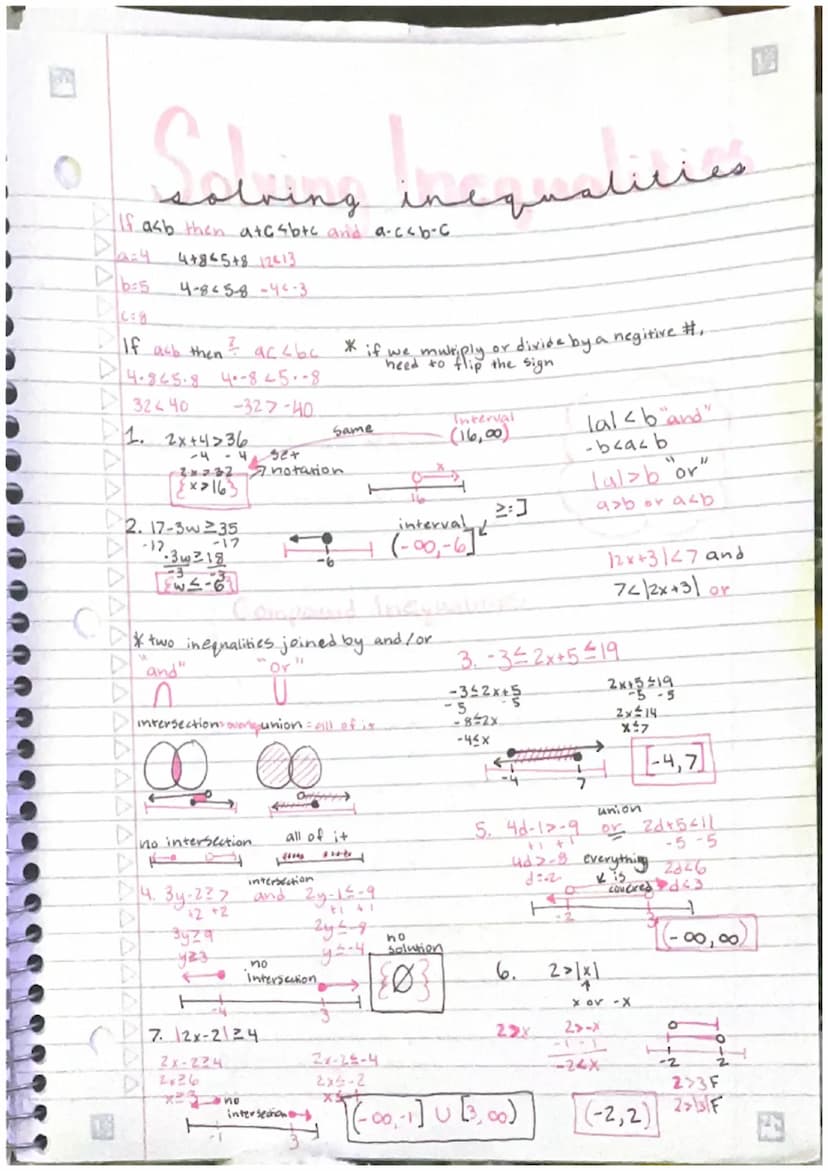 Solving Inequalities
solving inequalities
If a<b then a+c<b+c and a-c<b-c
a=4 4+8<5+8 12<13
b=5 4-8<5-8 -4<-3
c=8
If a<b then ? ac<bc * if we multiply or divide by a negitive #,
need to flip the sign
4·8<5·8 4·-8<5·-8
32<40 -32>-40
1. 2x+4>36
-4 -4
2x>32
{x>16}
same
set
notation
interval
(16,∞)
x
16
|a|<b "and"
-b<a<b
|a|>b "or"
a>b or a<b
2. 17-3w≥35
-17 -17
-3w≥18
-3 -3
{w≤-6}
-6
interval
≥=]
(-∞,-6]
|2x+3|<7 and
7<|2x+3| or
Compound Inequalities
* two inequalities joined by and/or
"and" "or"
∩ U
intersection= union= all of it
no intersection all of it
3. -3≤2x+5≤19
-3≤2x+5
-5 -5
-8≤2x
-4≤x
2x+5≤19
-5 -5
2x≤14
x≤7
-4 7
[-4,7]
4. 3y-2≥7 and 2y-1≤-9
intersection
+2 +2 +1 +1
3y≥9 2y≤-8
y≥3 y≤-4
no
intersection
-4 3
no
solution
{Ø}
5. 4d-1>-9 or 2d+5<11
union
+1 +1 -5 -5
4d>-8 2d<6
d>-2 d<3
everything
is
covered
-2 3
(-∞,∞)
6. 2>|x|
x or -x
2>x 2>-x
-1 -1
-2<x
-2 2
2>3 F
2>|3| F
(-2,2)
7. |2x-2|≥4
2x-2≥4 2x-2≤-4
2x≥6 2x≤-2
x≥3 x≤-1
no
intersection
-1 3
(-∞,-1] U [3,∞)